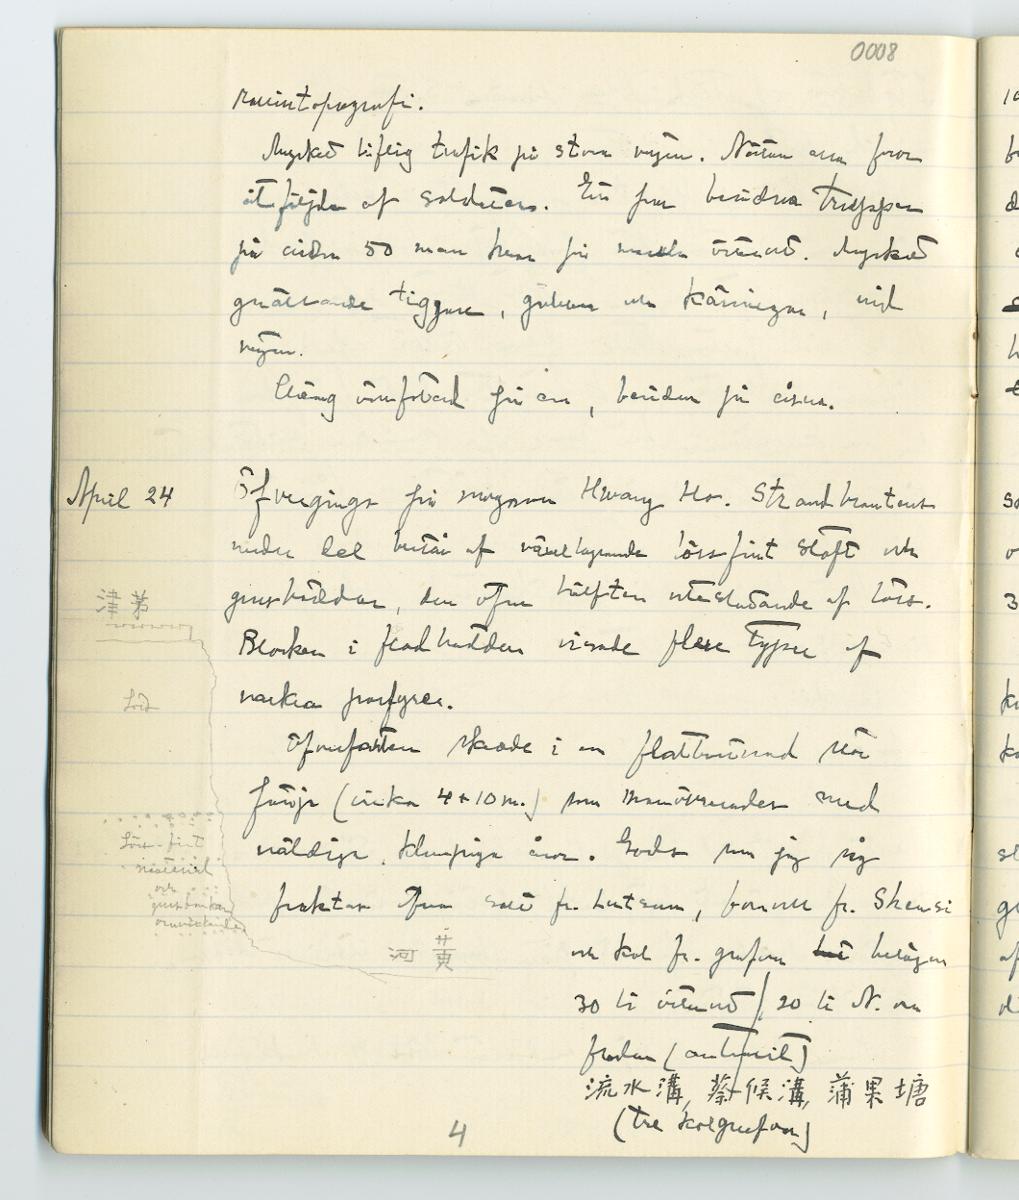 0008
ravintopografi.
Mycket liflig trafik på stora vägen. Nästan alla foror
åtföljda af soldater. En fin beriden trupp
på cirka 50 man kom på marsch österut. Mycket
gnällande tiggare, gubbar och käringar, vid
vägen.
på en, beriden på åsnan.
April 24
Öfvergings på morgonen Hwang Ho. Strandbrantens
nedre del består af växellagrande löss-fint stoft och
grusbäddar, den öfre hälften uteslutande af löss.
Blocken i flodbädden visade flere typer af
vackra porfyrer.
Öfverfarten skedde i en flatbottnad stor
färja (cirka 4+10 m.) som manövrerades med
väldiga, klumpiga åror. Gods som jag såg
fraktas öfver salt fr. , bomull fr. Shensi
och kol fr. grufvor belägna
30 li österut / 20 li N. om
floden (antracit)
流水溝, 蔡候溝, 蒲果塘
(tre kolgrufvor)
津茅
Löss
Löss-fint
material
och
grusbankar
omväxlande
河黄
4